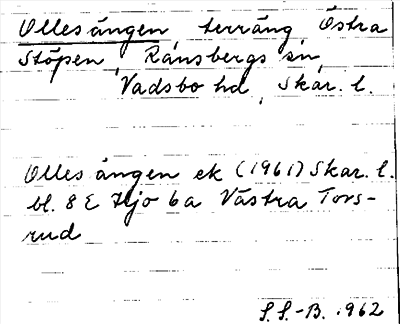 Ollesängen, terräng, Östra
Stöpen, Ransbergs sn,
Vadsbo hd, Skar. l.
Ollesängen ek (1961) Skar. l.
bl. 8 E Hjo 6a Västra Tors-
rud
S.S.-B. 1962